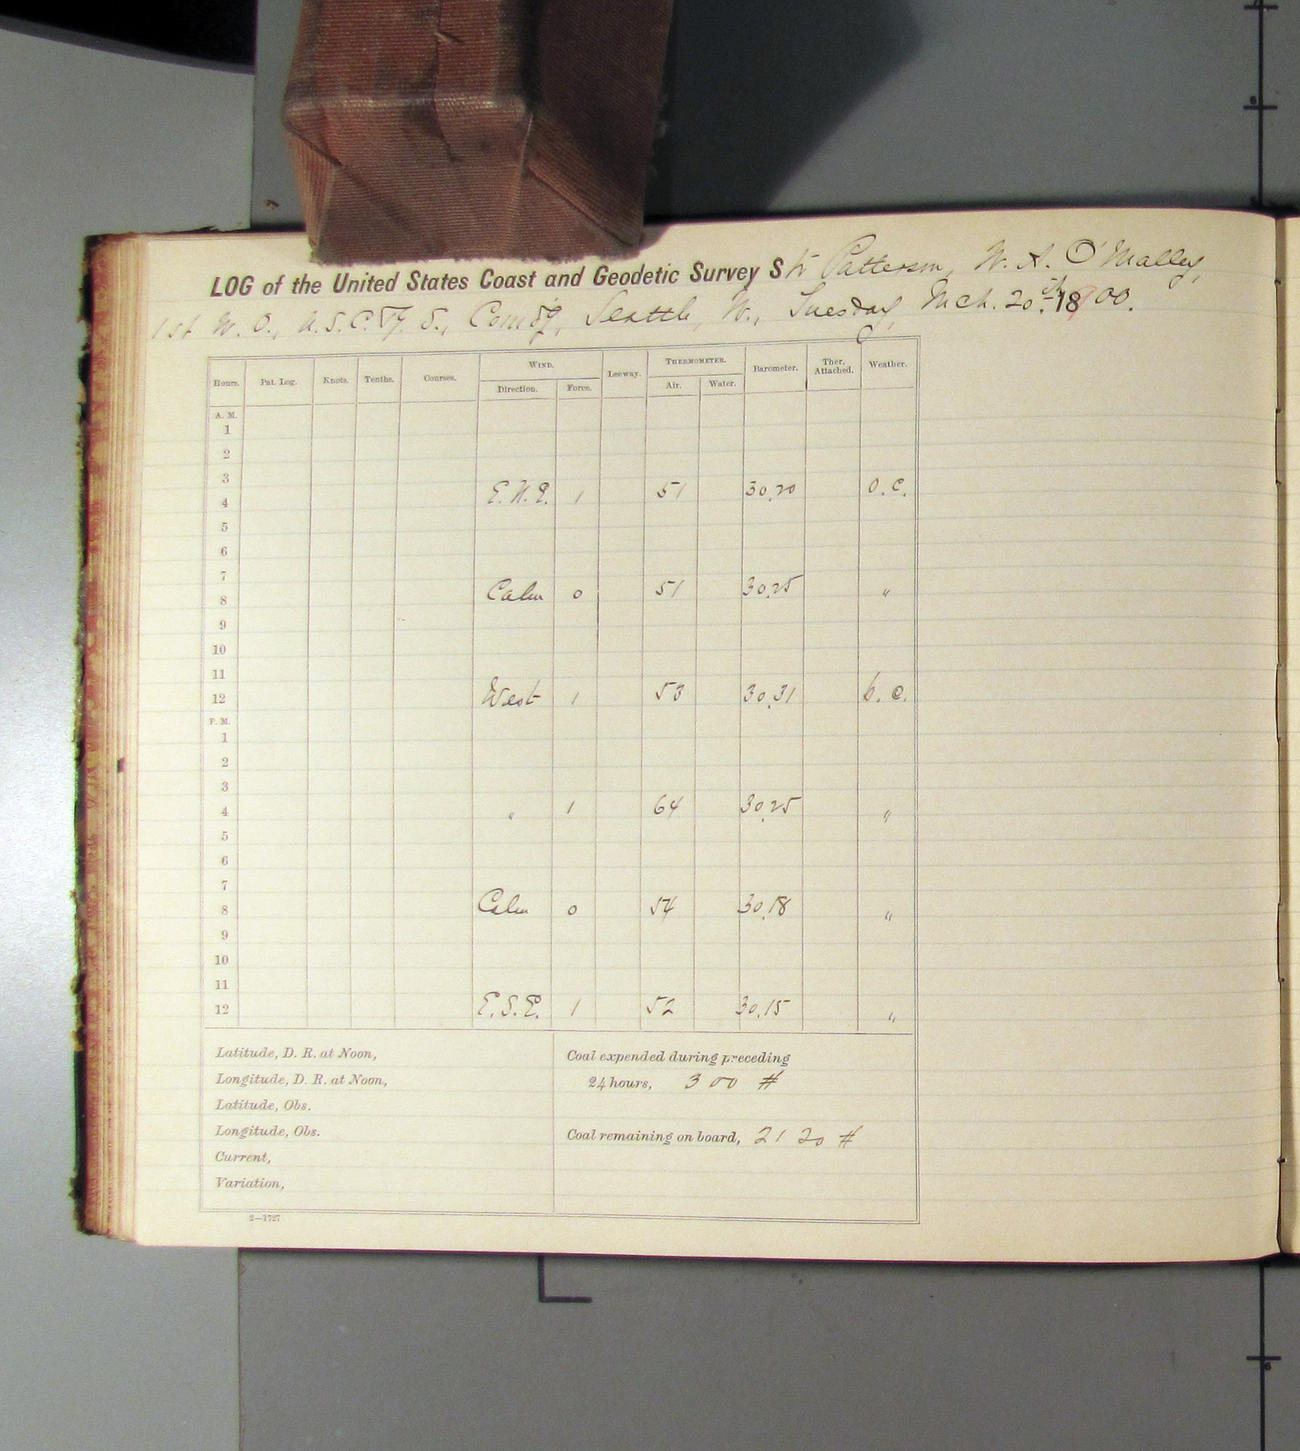 LOG of the United States Coast and Geodetic Survey Str Patterson, W. A. O'Malley,
1st W. O., U.S.C.&G. S., Comd'g, Seattle, W., Tuesday, Mch. 20th 1900.
Hours. Pat. Log. Knots. Tenths. Courses. WIND. Direction. Force. Leeway. THERMOMETER. Air. Water. Barometer. Ther. Attached. Weather.
A. M.
1
2
3
4 E.N.E. 1 51 30.20 O.C.
5
6
7
8 Calm 0 51 30.25 "
9
10
11
12 West 1 53 30.31 b.c.
P. M.
1
2
3
4 " 1 64 30.25 "
5
6
7
8 Calm 0 54 30.18 "
9
10
11
12 E.S.E. 1 52 30.15 "
Latitude, D. R. at Noon,
Longitude, D. R. at Noon,
Latitude, Obs.
Longitude, Obs.
Current,
Variation,
Coal expended during preceding
24 hours, 300 #
Coal remaining on board, 2120 #
2—1727